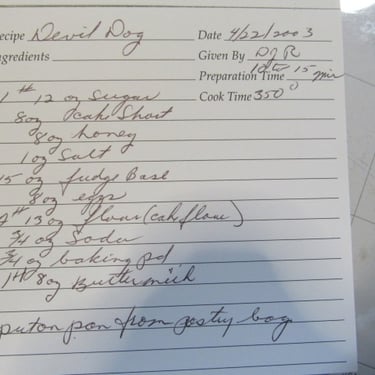 ecipe Devil Dog Date 4/22/2003
ngredients Given By DJR
Preparation Time 10 to 15 min
1# 12 oz Sugar Cook Time 350°
8oz cake Short
8oz honey
1oz Salt
15 oz fudge Base
8oz eggs
2# 13 oz flour (cake flour)
3/4 oz Soda
3/4 oz baking pd
1# 8oz Buttermilk
put on pan from pastry bag